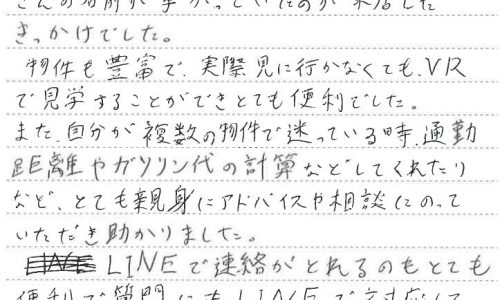 さんの名前が挙がっていたのが来店した
きっかけでした。
物件も豊富で、実際見に行かなくても、VR
で見学することができとても便利でした。
また、自分が複数の物件で迷っている時、通勤
距離やガソリン代の計算などしてくれたり
など、とても親身にアドバイスや相談にのって
いただき助かりました。
LINEで連絡がとれるのもとても
便利で質問にもLINEで対応して